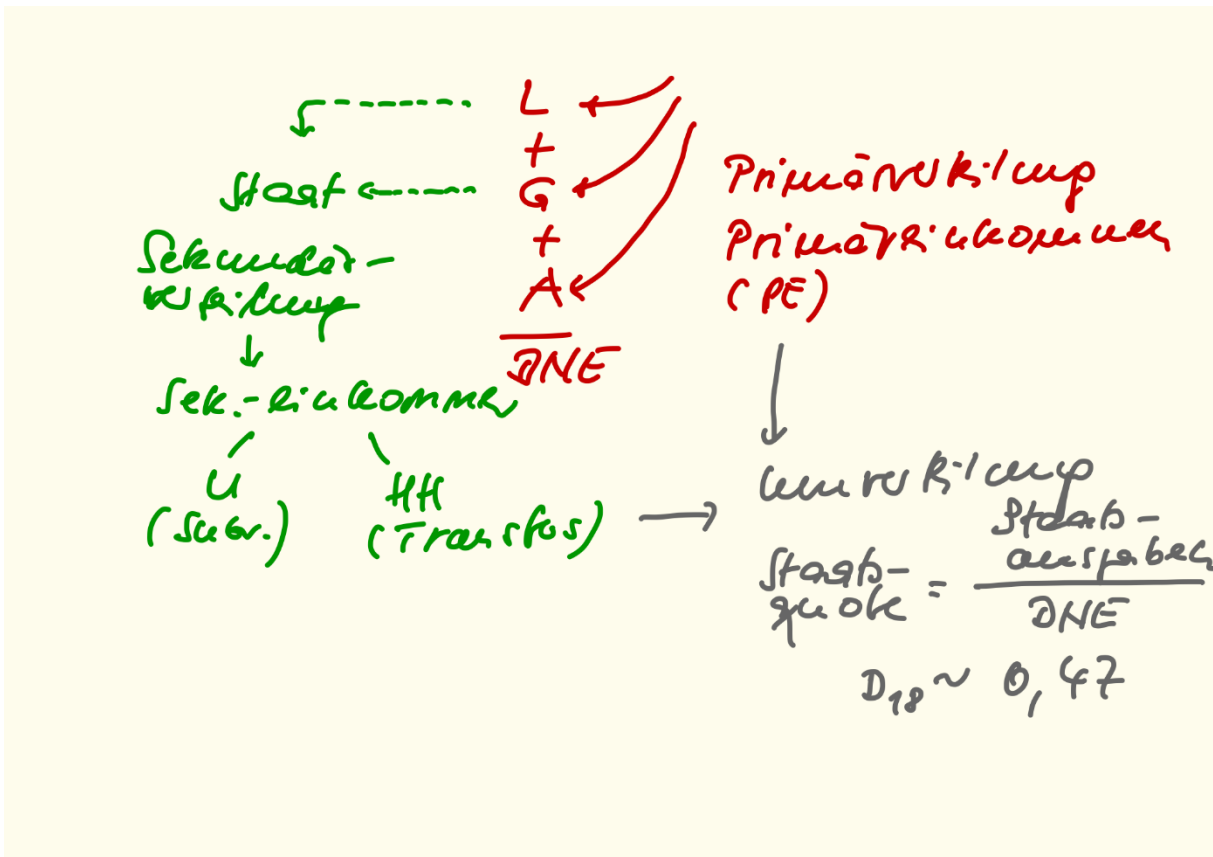 L
+
Staat
G
+
A
DNE
Sekundär-
verteilung
Sek.-einkommen
U
(Subv.)
HH
(Transfers)
Primärverteilung
Primäreinkommen
(PE)
Umverteilung
Staats-
quote
=
Staats-
ausgaben
DNE
D18 ~ 0,47